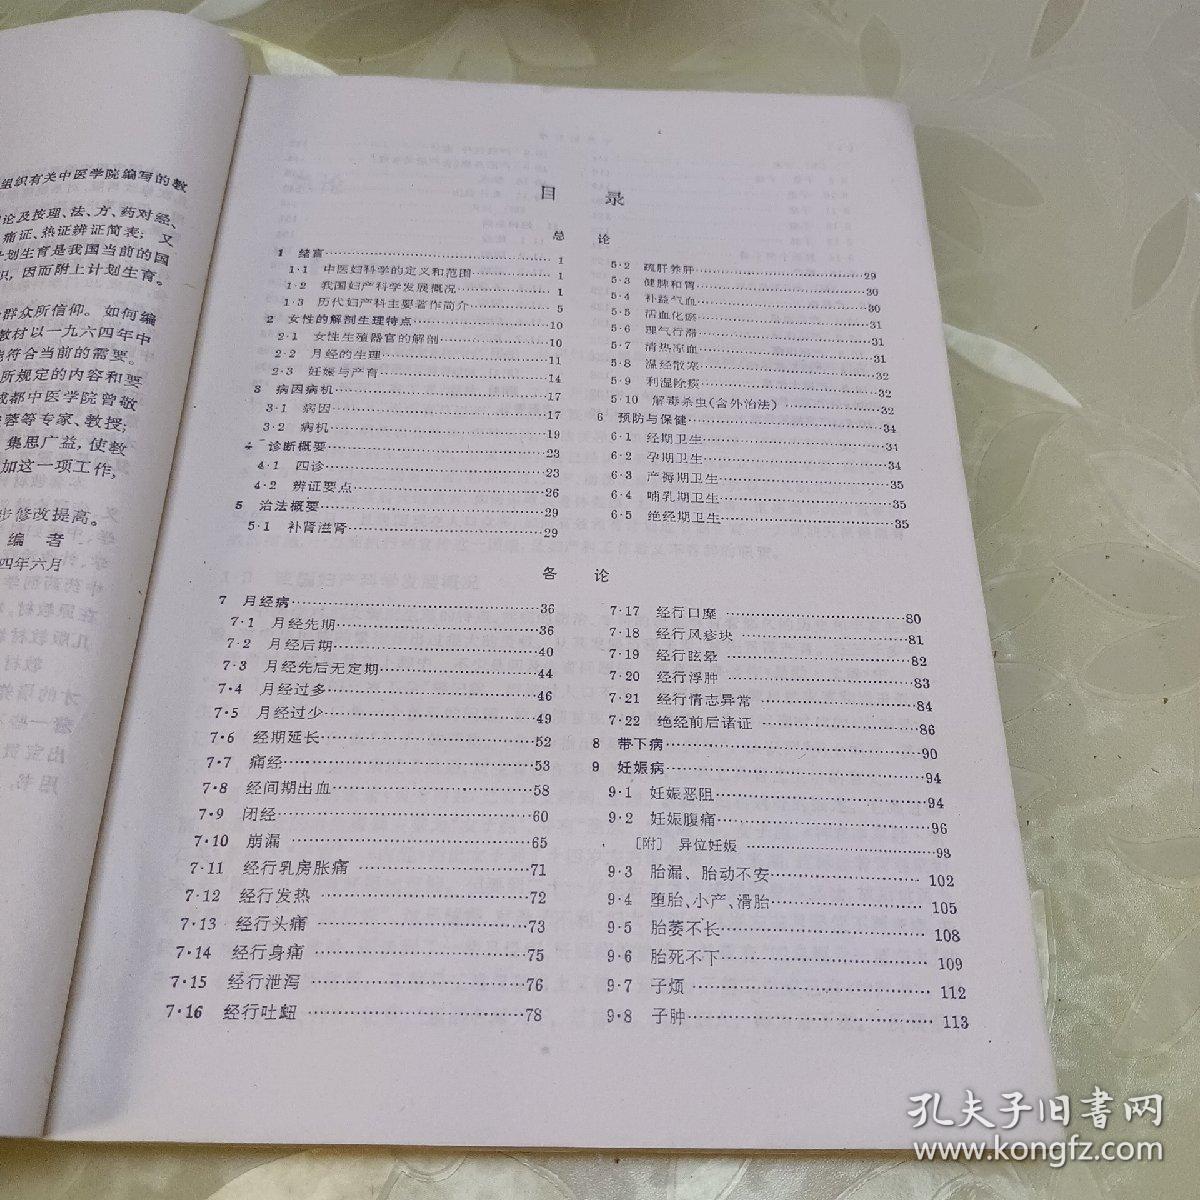 组织有关中医学院编写的教
论及按理、法、方、药对经、
痛证、热证辨证简表；又
计划生育是我国当前的国
识，因而附上计划生育。
群众所信仰。如何编
教材以一九六四年中
符合当前的需要。
所规定的内容和要
成都中医学院曾敬
蓉等专家、教授；
集思广益，使教
加这一项工作，
步修改提高。
编 者
四年六月
目 录
总 论
1 绪言……1
1·1 中医妇科学的定义和范围……1
1·2 我国妇产科学发展概况……1
1·3 历代妇产科主要著作简介……5
2 女性的解剖生理特点……10
2·1 女性生殖器官的解剖……10
2·2 月经的生理……11
2·3 妊娠与产育……14
3 病因病机……17
3·1 病因……17
3·2 病机……19
4 诊断概要……23
4·1 四诊……23
4·2 辨证要点……26
5 治法概要……29
5·1 补肾滋肾……29
5·2 疏肝养肝……29
5·3 健脾和胃……30
5·4 补益气血……30
5·5 活血化瘀……31
5·6 理气行滞……31
5·7 清热凉血……31
5·8 温经散寒……32
5·9 利湿除痰……32
5·10 解毒杀虫(含外治法)……32
6 预防与保健……34
6·1 经期卫生……34
6·2 孕期卫生……34
6·3 产褥期卫生……35
6·4 哺乳期卫生……35
6·5 绝经期卫生……35
各 论
7 月经病……36
7·1 月经先期……36
7·2 月经后期……40
7·3 月经先后无定期……44
7·4 月经过多……46
7·5 月经过少……49
7·6 经期延长……52
7·7 痛经……53
7·8 经间期出血……58
7·9 闭经……60
7·10 崩漏……65
7·11 经行乳房胀痛……71
7·12 经行发热……72
7·13 经行头痛……73
7·14 经行身痛……75
7·15 经行泄泻……76
7·16 经行吐衄……78
7·17 经行口糜……80
7·18 经行风疹块……81
7·19 经行眩晕……82
7·20 经行浮肿……83
7·21 经行情志异常……84
7·22 绝经前后诸证……86
8 带下病……90
9 妊娠病……94
9·1 妊娠恶阻……94
9·2 妊娠腹痛……96
〔附〕 异位妊娠……98
9·3 胎漏、胎动不安……102
9·4 堕胎、小产、滑胎……105
9·5 胎萎不长……108
9·6 胎死不下……109
9·7 子烦……112
9·8 子肿……113
孔夫子旧书网
www.kongfz.com